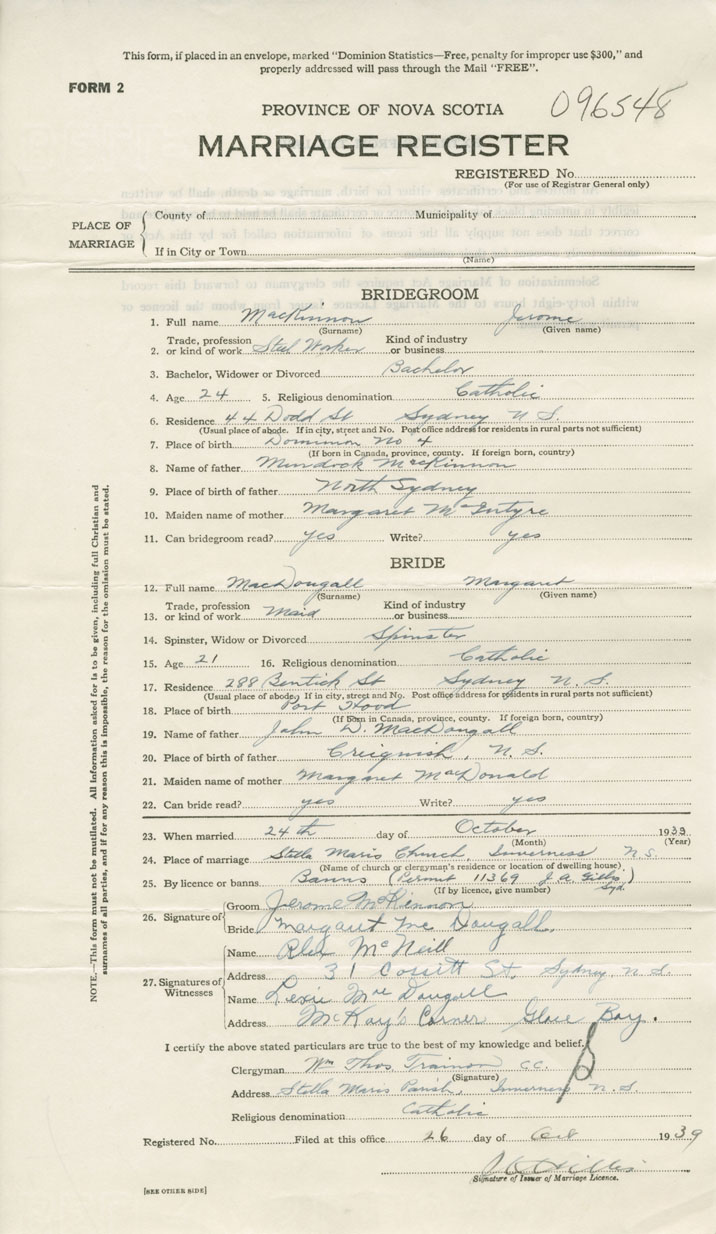 This form, if placed in an envelope, marked "Dominion Statistics—Free, penalty for improper use $300," and
properly addressed will pass through the Mail "FREE".
FORM 2
096548
PROVINCE OF NOVA SCOTIA
MARRIAGE REGISTER
REGISTERED No.
(For use of Registrar General only)
PLACE OF MARRIAGE
County of Municipality of
If in City or Town
(Name)
BRIDEGROOM
1. Full name MacKinnon Jerome
(Surname) (Given name)
2. Trade, profession or kind of work Steel Worker Kind of industry or business
3. Bachelor, Widower or Divorced Bachelor
4. Age 24 5. Religious denomination Catholic
6. Residence 44 Dodd St Sydney N. S.
(Usual place of abode. If in city, street and No. Post office address for residents in rural parts not sufficient)
7. Place of birth Dominion No 4
(If born in Canada, province, county. If foreign born, country)
8. Name of father Murdock MacKinnon
9. Place of birth of father North Sydney
10. Maiden name of mother Margaret McIntyre
11. Can bridegroom read? yes Write? yes
BRIDE
12. Full name MacDougall Margaret
(Surname) (Given name)
13. Trade, profession or kind of work Maid Kind of industry or business
14. Spinster, Widow or Divorced Spinster
15. Age 21 16. Religious denomination Catholic
17. Residence 288 Bentick St Sydney N. S.
(Usual place of abode. If in city, street and No. Post office address for residents in rural parts not sufficient)
18. Place of birth Port Hood
(If born in Canada, province, county. If foreign born, country)
19. Name of father John D. MacDougall
20. Place of birth of father Creignish, N. S.
21. Maiden name of mother Margaret MacDonald
22. Can bride read? yes Write? yes
23. When married 24th day of October 1939
(Month) (Year)
24. Place of marriage Stella Maris Church, Inverness N.S.
(Name of church or clergyman's residence or location of dwelling house)
25. By licence or banns Banns (Permit 11369 J. A. Gillis Syd.)
(If by licence, give number)
26. Signature of
Groom Jerome McKinnon
Bride Margaret Mc Dougall.
27. Signatures of Witnesses
Name Alex McNeill
Address 31 Cossitt St. Sydney N. S.
Name Lexie MacDougall
Address McKay's Corner Glace Bay.
I certify the above stated particulars are true to the best of my knowledge and belief.
Clergyman Wm Thos. Trainor CC.
(Signature)
Address Stella Maris Parish, Inverness N. S.
Religious denomination Catholic
Registered No. Filed at this office 26 day of Oct 1939
Signature of Issuer of Marriage Licence.
[SEE OTHER SIDE]
NOTE.—This form must not be mutilated. All information asked for is to be given, including full Christian and
surnames of all parties, and if for any reason this is impossible, the reason for the omission must be stated.